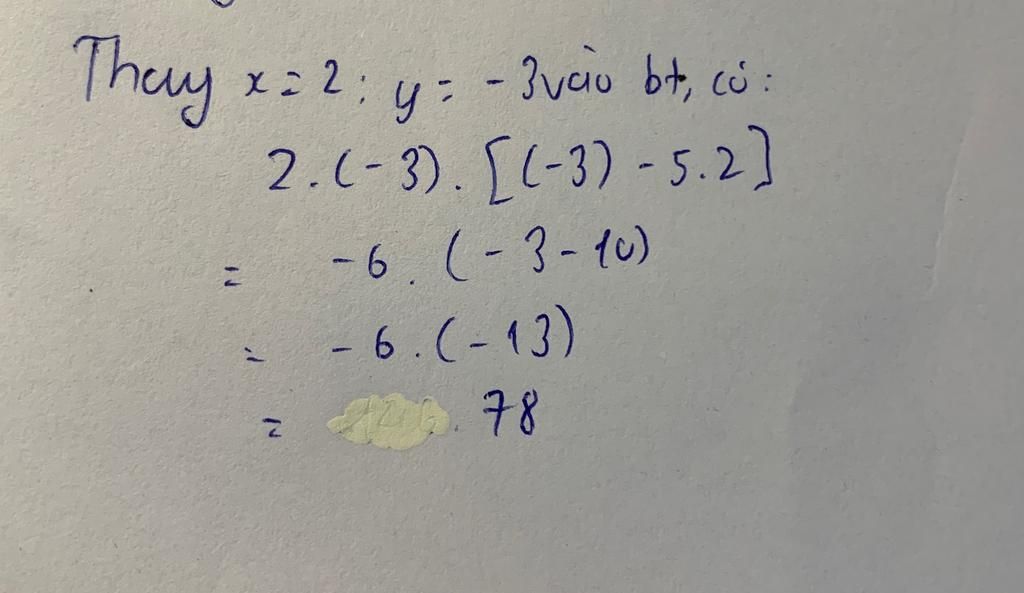 Thay x = 2 ; y = -3 vào bt, có :
2.(-3).[(-3) - 5.2]
= -6.(-3-10)
= -6.(-13)
= 78